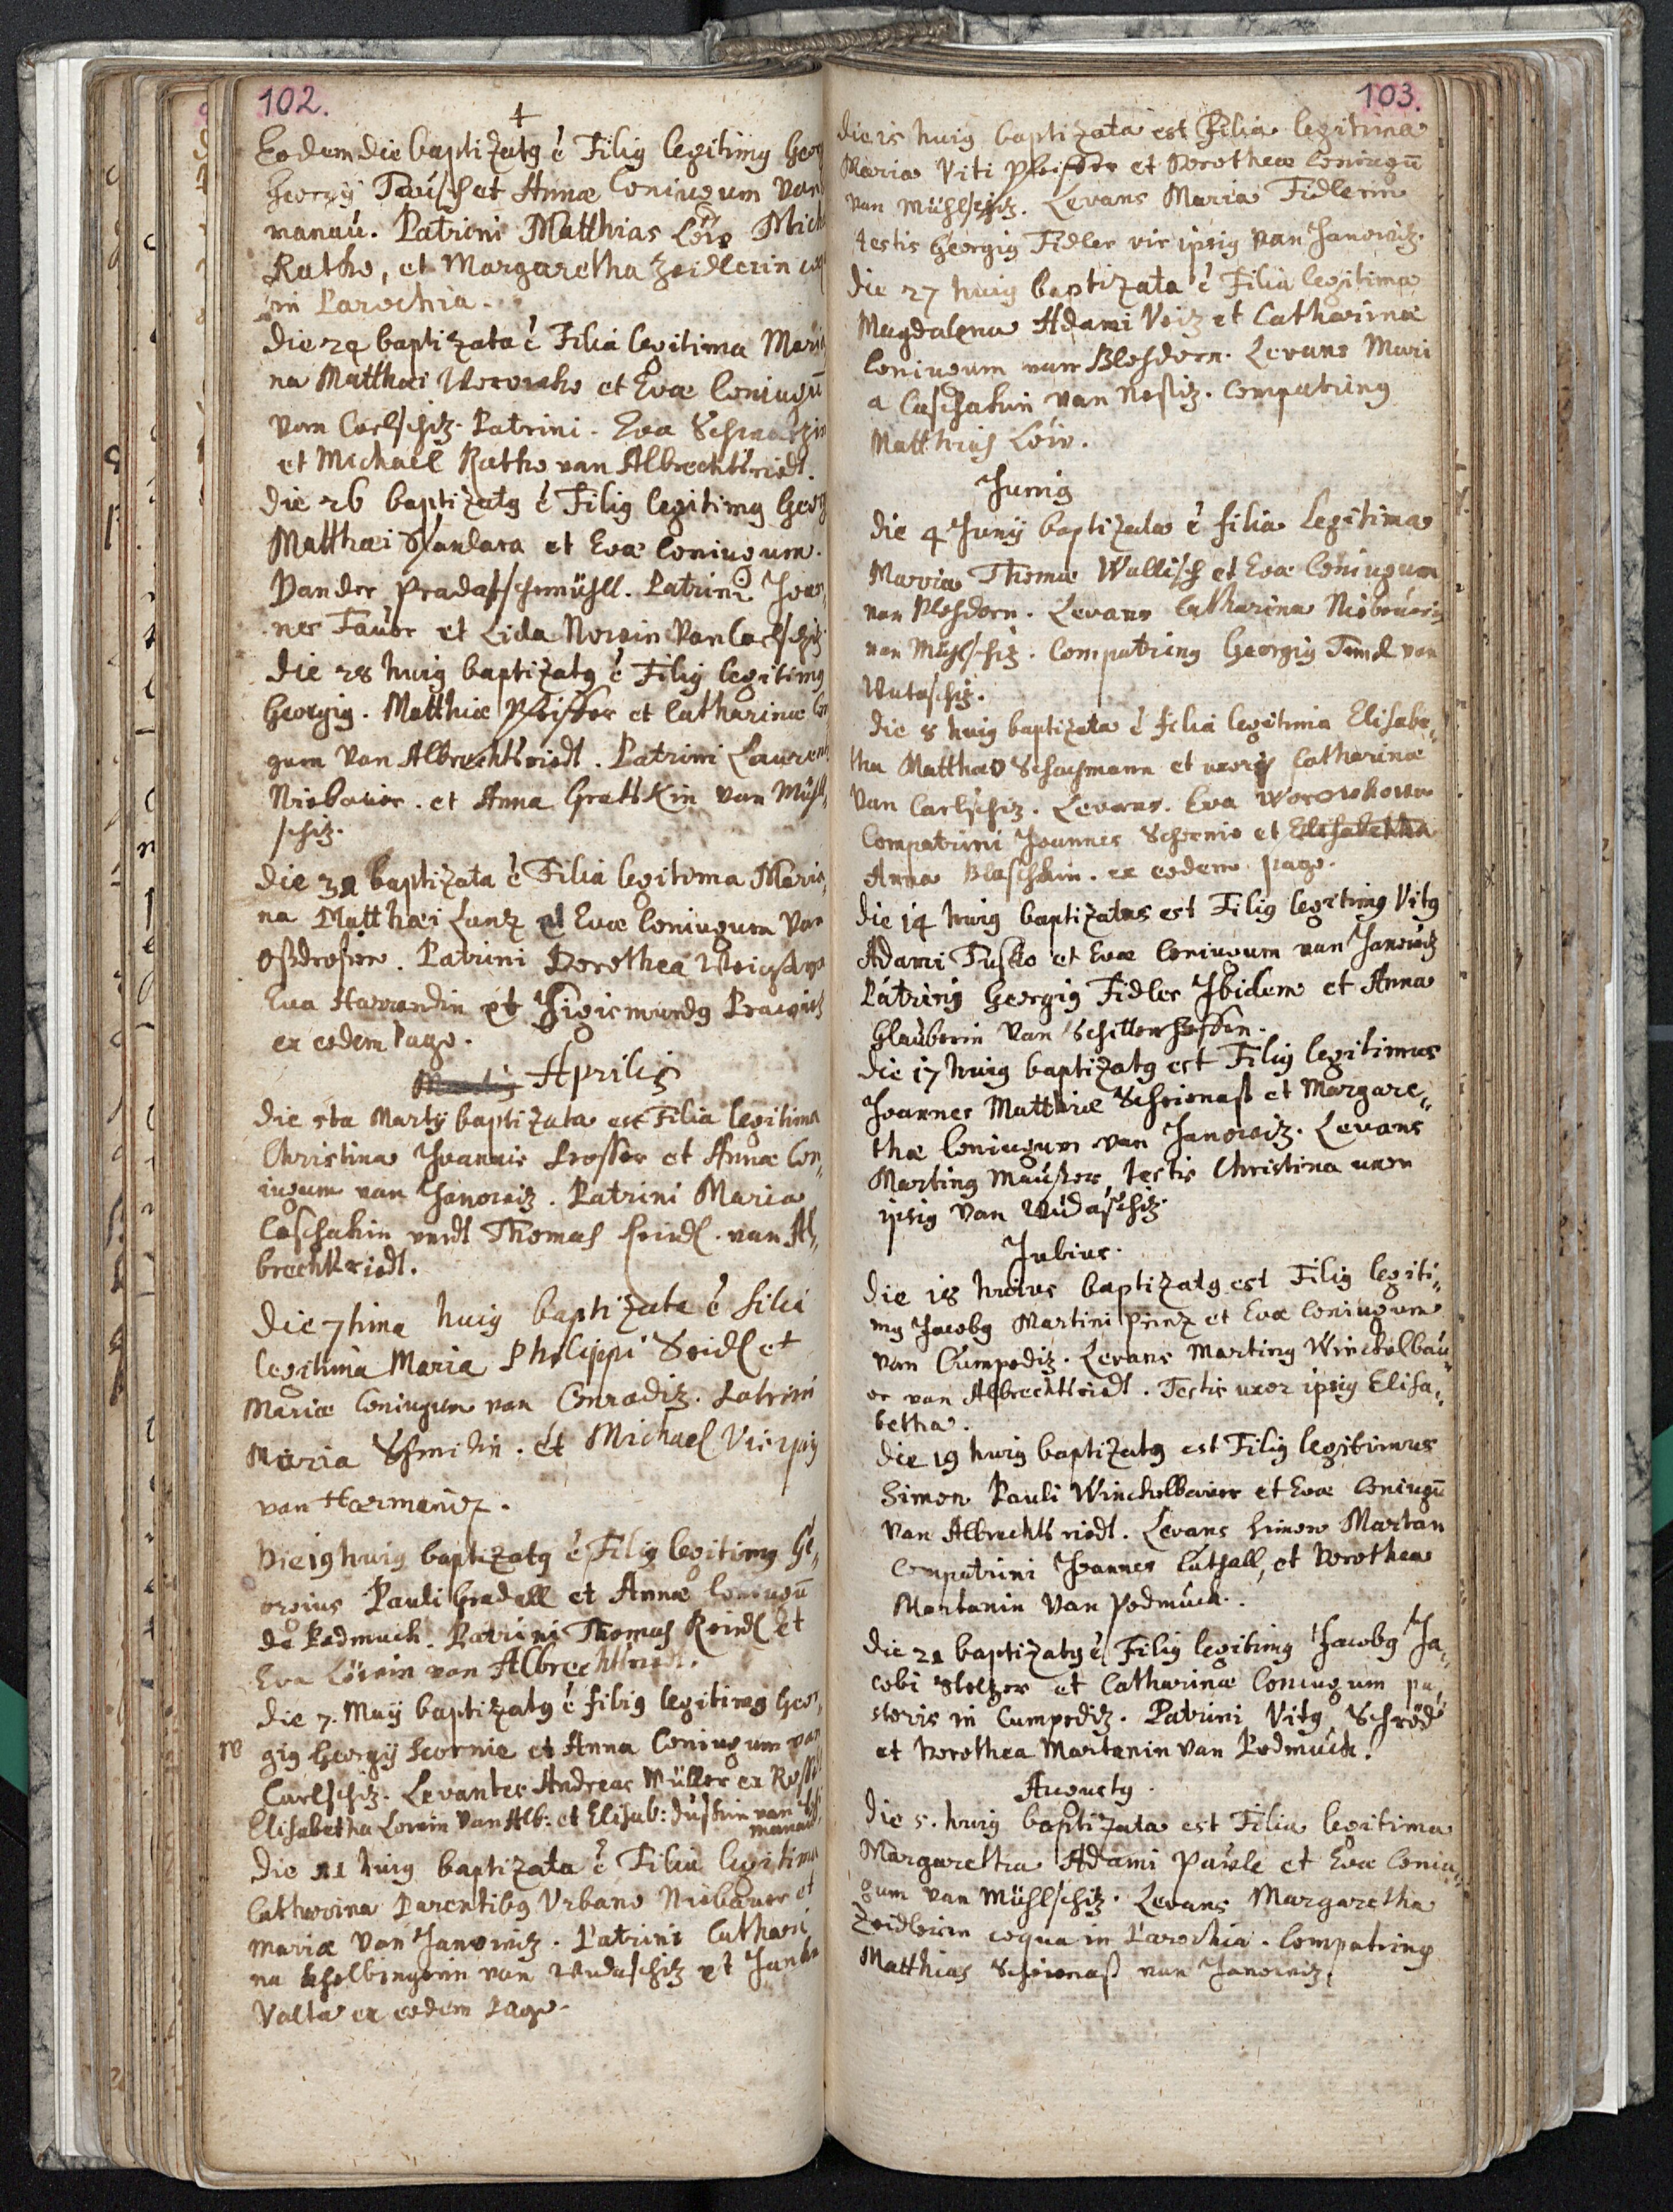 102.
Eodem die baptizatg ē Filig legitimg Geor
Georgÿ Tausch et Annæ Coniugum von
manaú. Patrini Matthias Löw Mich
Ratho, et Margaretha Zeidlerin
in Parochia.
die 24 baptizata ē Filia legitima Maria
na Matthæi Worowko et Evæ Coniugū
von Carlschiz. Patrini. Eva
et Michael Ratho van Albrechtsriedt.
die 26 baptizatg ē Filig legitimg Geor
Matthæi et Evæ Coniugum.
Von der Pradatschmühll. Patrini Joan,
nes Fauor et Lida Nowin Van Carlschiz
die 28 huig baptizatg ē Filig legitimg
Georgig. Matthiæ Pfeiffer et Catharinæ Con
gum Van Albrechtsriedt. Patrini Laurent
Niebauer. et Anna Grettkin van Mühl,
schiz.
die 31 baptizata ē Filia legitima Maria,
na Matthæi Lunz et Evæ Coniugum Van
. Patrini Dorothea
Eva et Sigismundg
ex eodem Pago.
Aprilis
die 5ta Martÿ baptizata est Filia legitima
Christina Joannis Prosser et Annæ Con,
iugum van Janowiz. Patrini Maria
Caschakin vndt Thomas Reindl. van Al,
brechtsriedt.
Die 7tima huig baptizata ē filia
legitima Maria Philippi Seidl et
Mariæ Coniugum van Conradiz. Patrini
Maria Schmidin. et Michael
van Harmaniz.
Die 19 huig baptizatg ē Filig legitimg Ge,
orgius Pauli Gradall et Annæ Coniugū
de Podmuch. Patrini Thomas Reindl et
Eva Löwin van Albrechtsriedt.
die 7. Maÿ baptizatg ē filig legitimg Geor,
gig Georgÿ Scornie et Anna Coniugum van
Carlschiz. Levantes Andreas Müller ex
Elisabetha Lowin Van Alb: et Elisab: van
manau.
die 11 huig baptizata ē Filia legitima
Catharina Parentibg Vrbano Niebauer et
Mariæ Van Janowiz. Patrini Cathari
na van Wudaschiz et
Valta ex eodem Pago.
103.
die 15 huig baptizata est Filia legitima
Maria Viti Pfeiffer et Dorotheæ Coniugū
van Mühlschiz. Levans Maria Fidlerin
testis Georgig Fidler vir ipsig van Janowiz.
die 27 huig baptizata ē Filia legitima
Magdalena Adami Veiz et Catharinæ
Coniugum van Bloshdorn. Levans Mari
a Caschakin van Nostiz. Compatring
Matthias Löw.
Junig
die 4 Junÿ baptizata ē filia Legitima
Maria Thomæ Wallisch et Evæ Coniugum
van Ploshdorn. Levans Catharina
van Mühlschiz. Compatring Georgig van
Wutaschiz.
die 8 huig baptizata ē filia legitima Elisabe,
tha Matthæo Schachmann et uxoris Catharinæ
Van Carlschiz. Levans. Eva Worowkown
Compatrini Joannes Schornie et Elisabetha
Anna Blaschkin. ex eodem pago.
die 14 huig baptizatus est Filig legitimg Vitg
Adami et Evæ Coniugum van Janowiz
Patring Georgig Fidler Ibidem et Anna
Glauberin Van Schillerhoffen.
die 17 huig baptizatg est Filig legitimus
Joannes Matthiæ Scheionass et Margare,
thæ Coniugum van Janowiz. Levans
Marting, testis Christina uxor
ipsig Van Wudaschiz.
Julius.
die 18 huius baptizatg est Filig legiti,
mg Jacobg Martini Prinz et Evæ Coniugum
van Cumpodiz. Levans Marting Winckelbau
er van Albrechtsriedt. Testis uxor ipsig Elisa,
betha.
die 19 huig baptizatg est Filig legitimus
Simon Pauli Winckelbauer et Evæ Coniugū
Van Albrechts riedt. Levans Simon Martan
Compatrini Joannes, et Dorothea
Martanin Van Podmúck.
die 21 baptizatg ē Filig legitimg Jacobg Ja,
cobi Stelzer et Catharinæ Coniugum pa,
storis in Cumpodiz. Patrini Vitg Schröd
et Dorothea Martanin van Podmúck.
Augustg.
die 5. huig baptizata est Filia legitima
Margaretha Adami Pawle et Evæ Coniu,
gum van Mühlschiz. Levans Margaretha
Zeidlerin coqua in Parochia. Compatring
Matthias Scheionass van Janowiz.